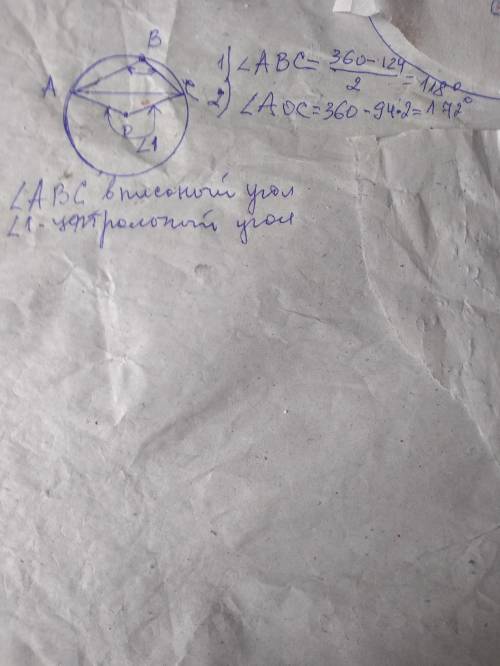 B
A
C
P
∠1
1) ∠ABC = 360-124 / 2 = 118°
2) ∠AOC = 360 - 94·2 = 172°
∠ABC вписоный угол
∠1 - центрольный угол